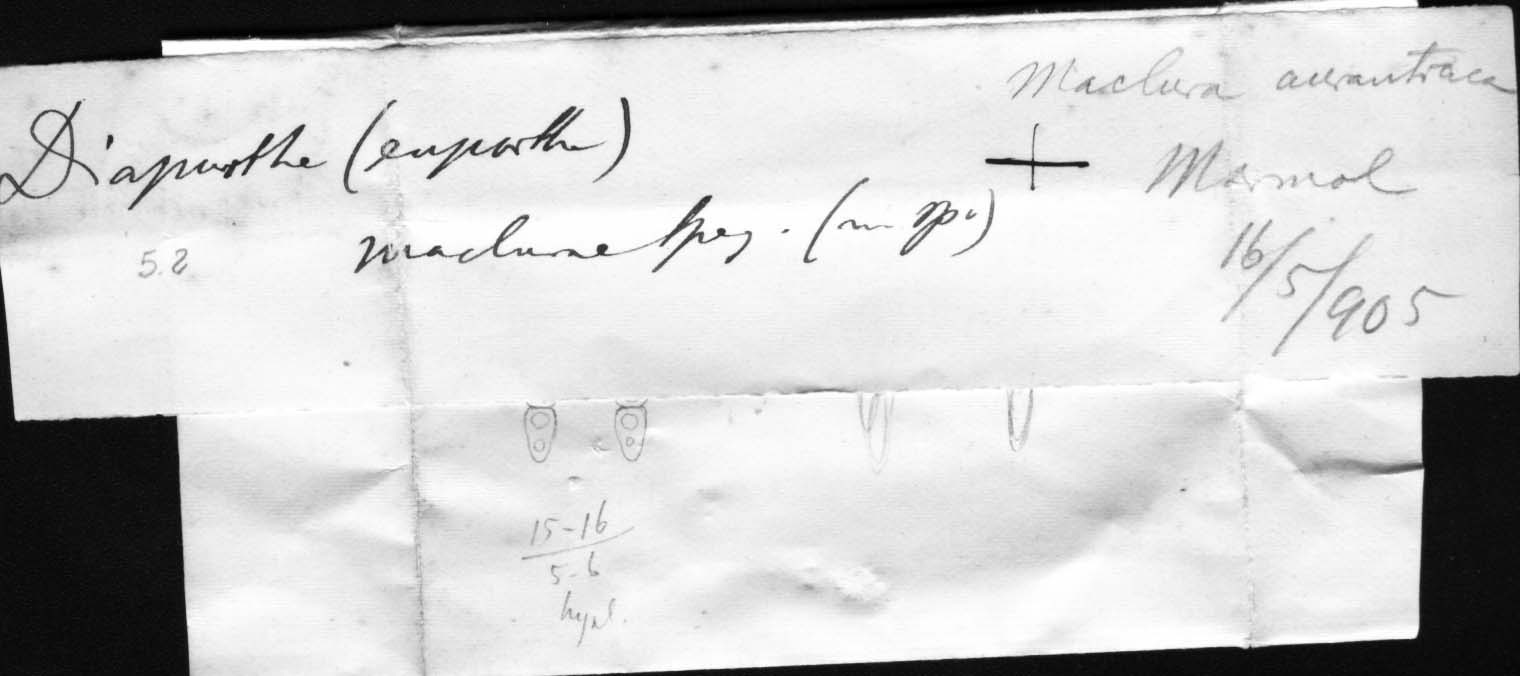 Maclura aurantiaca
Diaporthe (euporthe)
+
Marmol
maclurae Speg. (n. sp.)
16/5/905
5.2
15-16
5-6
hyal.